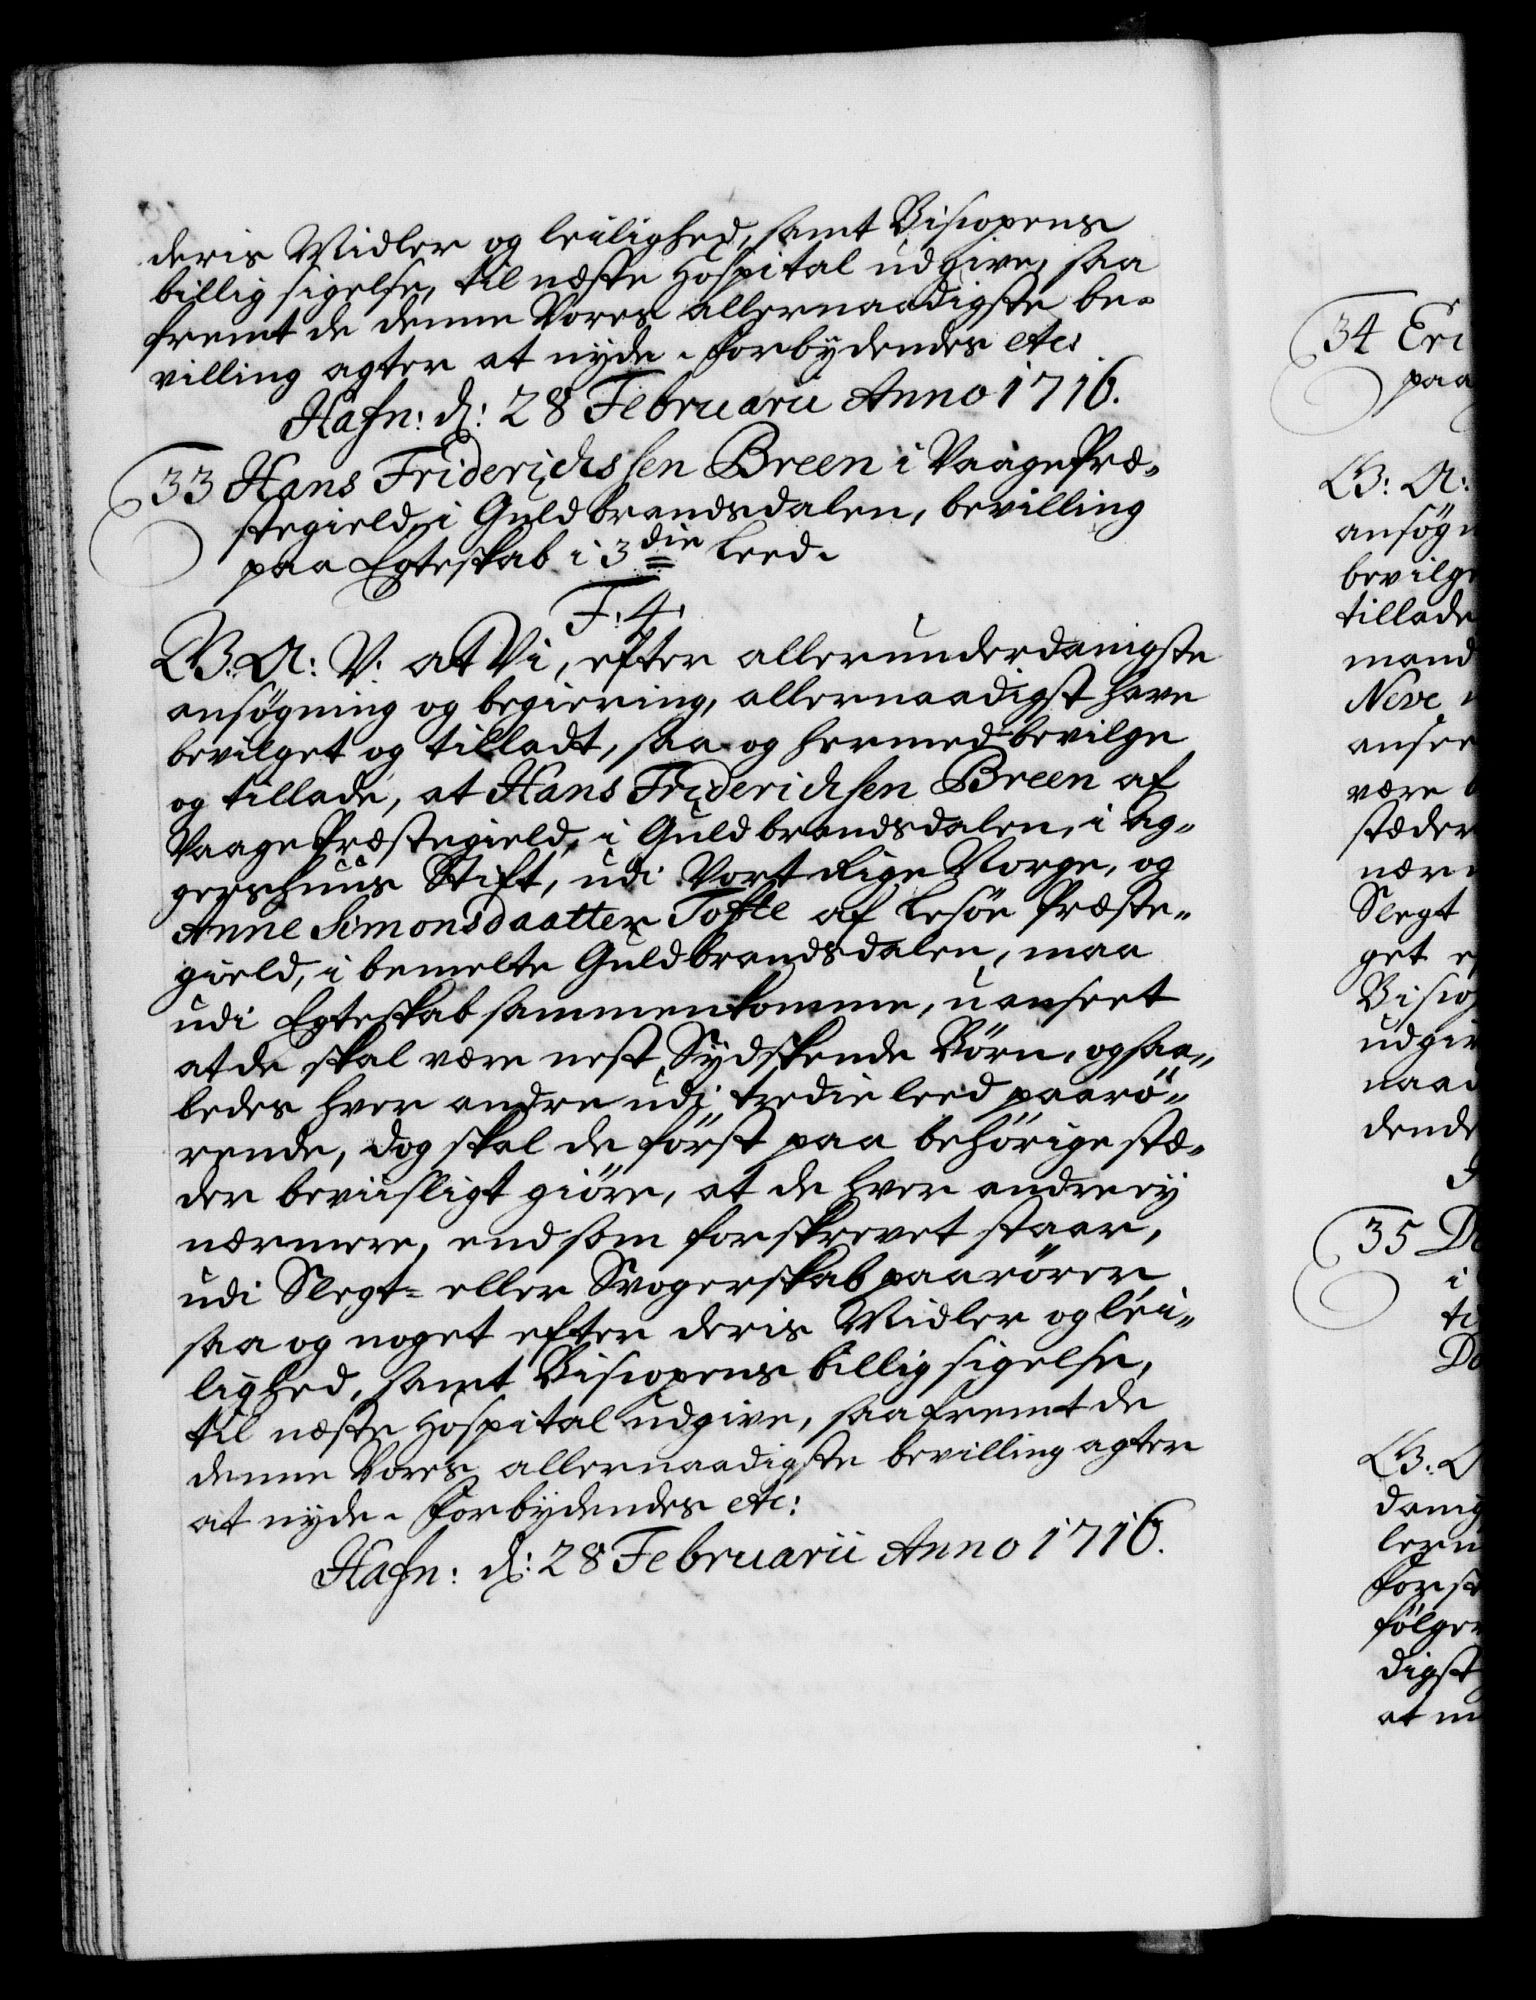 deris Midler og leilighed, samt Biscopens
billig sigelse, til næste Hospital udgive, saa
fremt de denne Vores allernaadigste be-
villing agter at nyde. Forbydendes etc:
Hafn: d: 28 Februarii Anno 1716.
33 Hans Friderichssen Breen i Vaage Præ-
stegield, i Guldbrandsdalen, bevilling
paa Egteskab i 3die Leed.
F: 4.
G. A: V. at Vi, efter allerunderdanigste
ansøgning og begiering, allernaadigst have
bevilget og tilladt, saa og hermed bevilge
og tillade, at Hans Friderichsen Breen af
Vaage Præstegield, i Guldbrandsdalen, i Ag-
gershuus Stift, udi Vort Rige Norge, og
Anne Simonsdaatter Tofte af Lesøe Præste-
gield, i bemelte Guldbrandsdalen, maa
udi Egteskab sammenkomme, uanseet
at de skal være nest Sydskende Børn, og saa-
ledes hver andre udi tredie leed paarø-
rende, dog skal de først paa behørige stæ-
der beviisligt giøre, at de hver andre ey
nærmere, end som forskrevet staar,
udi Slegt- eller Svogerskab paarører,
saa og noget efter deris Midler og lei-
lighed, samt Biscopens billig sigelse,
til næste Hospital udgive, saafremt de
denne Vores allernaadigste bevilling agter
at nyde. Forbydendes etc:
Hafn: d: 28 Februarii Anno 1716.
34 Eri
paa
G: A:
ansøgn
bevilge
tillade
mand
Neve
ansee
være
stæder
nærm
Slegt
get ef
Biscop
udgiv
naad
dende
35 D
i
ti
Do
G: A
danig
lern
Forst
følger
digst
at m